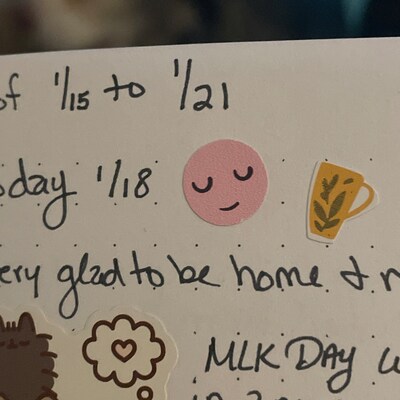 of 1/15 to 1/21
sday 1/18
ery glad to be home &
MLK DAY